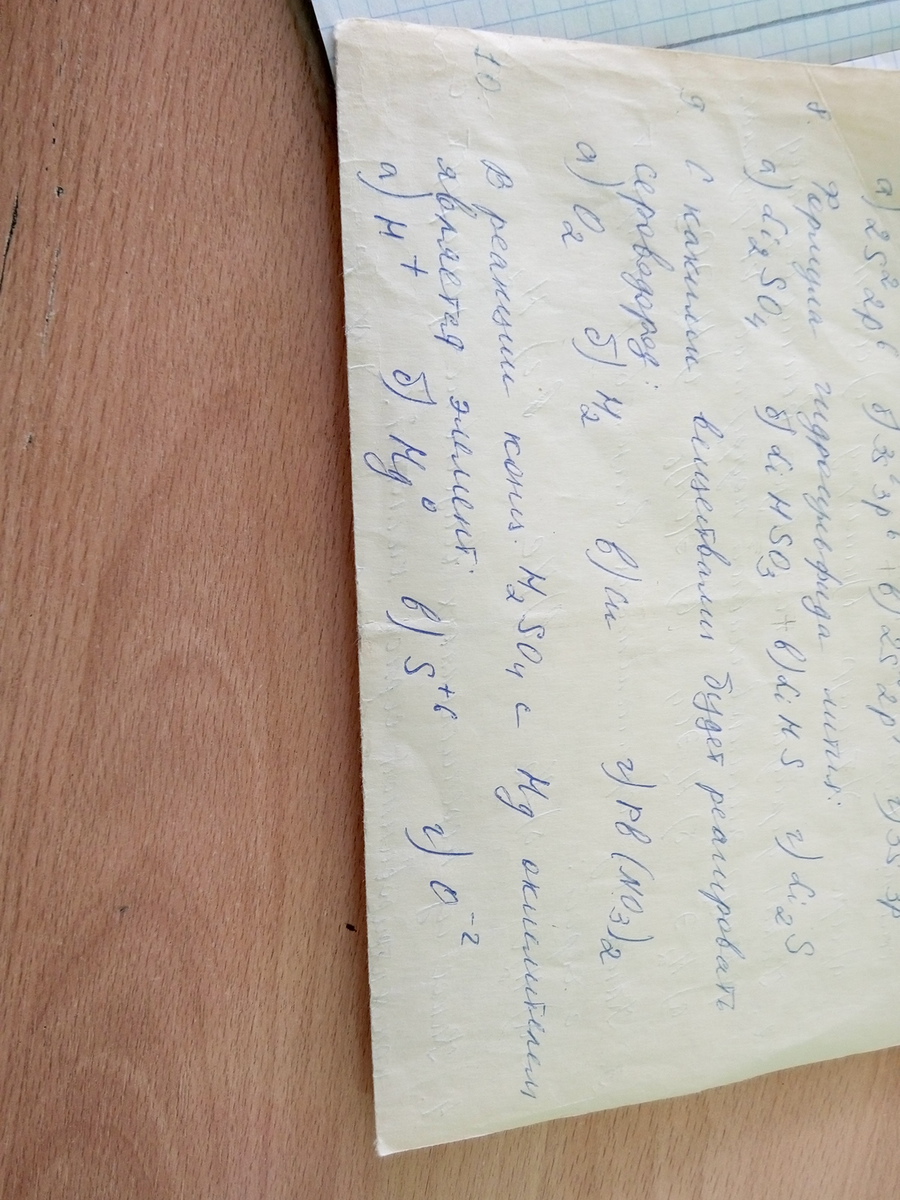 а) 2s²2p⁶ б) 3s²3p⁶ + в) 2s²2p⁴ г) 3s 3p
8. Формула гидросульфида лития:
а) Li₂SO₄ б) LiHSO₃ + в) LiHS г) Li₂S
9. С какими веществами будет реагировать
сероводород:
а) O₂ б) H₂ в) Cu г) Pb(NO₃)₂
10. В реакции конц. H₂SO₄ с Mg окислителем
является элемент:
а) H⁺ б) Mg⁰ в) S⁺⁶ г) O⁻²